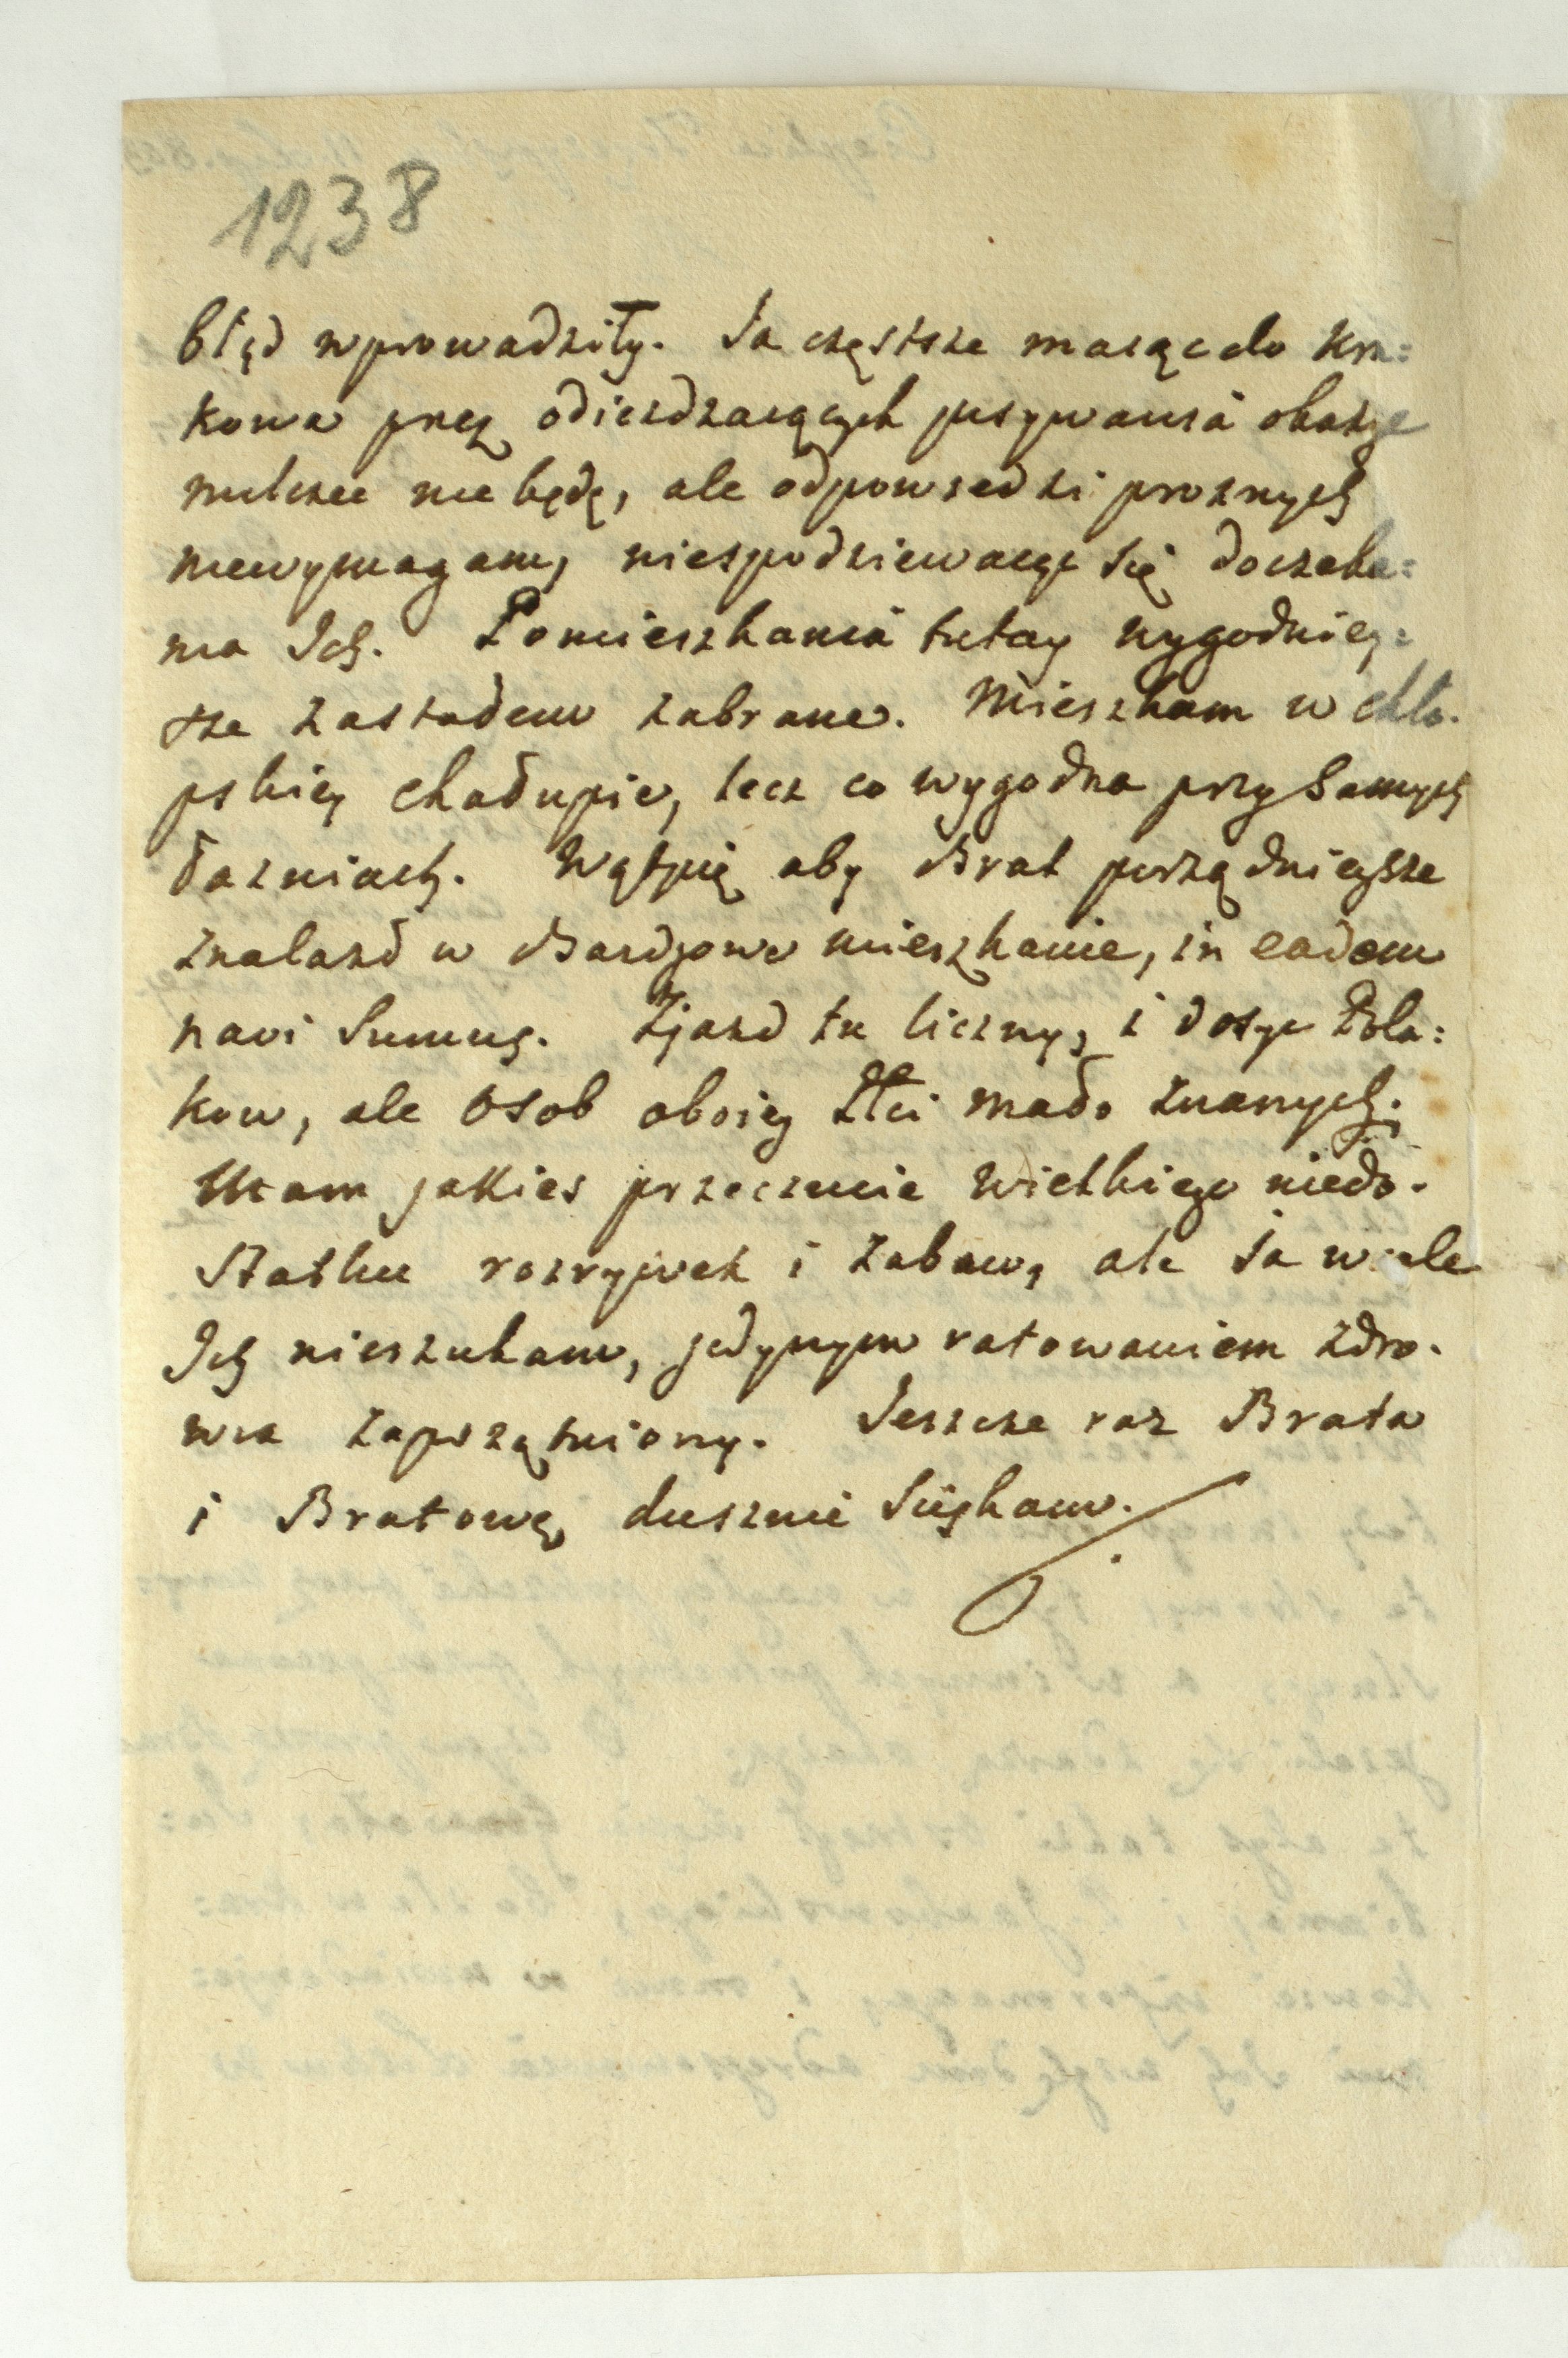 1238
błęd wprowadziły. Ja częstsze maiąc do Kra:
kowa przez odieżdzaiących pisywania okazye
milczec nie będę, ale odpowiedzi proznych
niewymagam, niespodziewaiąc się doczeka:
nia Ich. Pomieszkania tutay wygodniey:
sze zastałem zabrane. Mieszkam w chło-
pskiey chałupie, lecz co wygodna przy samych
łazniach. Wątpię aby Brat porządnieysze
znalazł w Bardyowe mieszkanie, in eadem
navi sumus. Zjazd tu liczny, i dosyc Pola:
kow, ale osob oboiey Płci mało znanych;
Mam jakies przeczucie wielkiego niedo-
statku rozrywek i zabaw, ale ia wcale
Ich nieszukam, jedynym ratowaniem zdro-
wia zaprzątniony. Jeszcze raz Brata
i Bratowę dusznie sciskam.